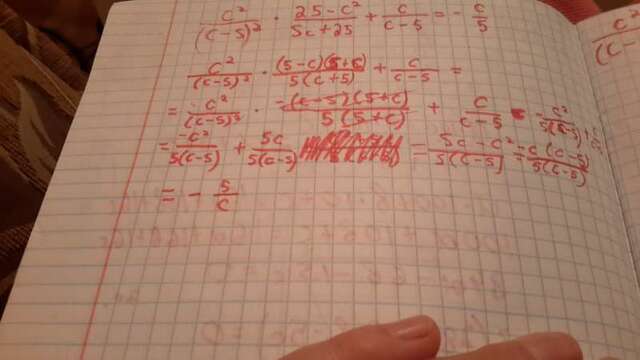 c²/(c-5)² · 25-c²/5c+25 + c/c-5 = - c/5
c²/(c-5)² · (5-c)(5+c)/5(c+5) + c/c-5 =
= c²/(c-5)² · -(c-5)(5+c)/5(5+c) + c/c-5 = -c²/5(c-5) +
= -c²/5(c-5) + 5c/5(c-5) = 5c-c²/5(c-5) = -c(c-5)/5(c-5)
= - 5/c